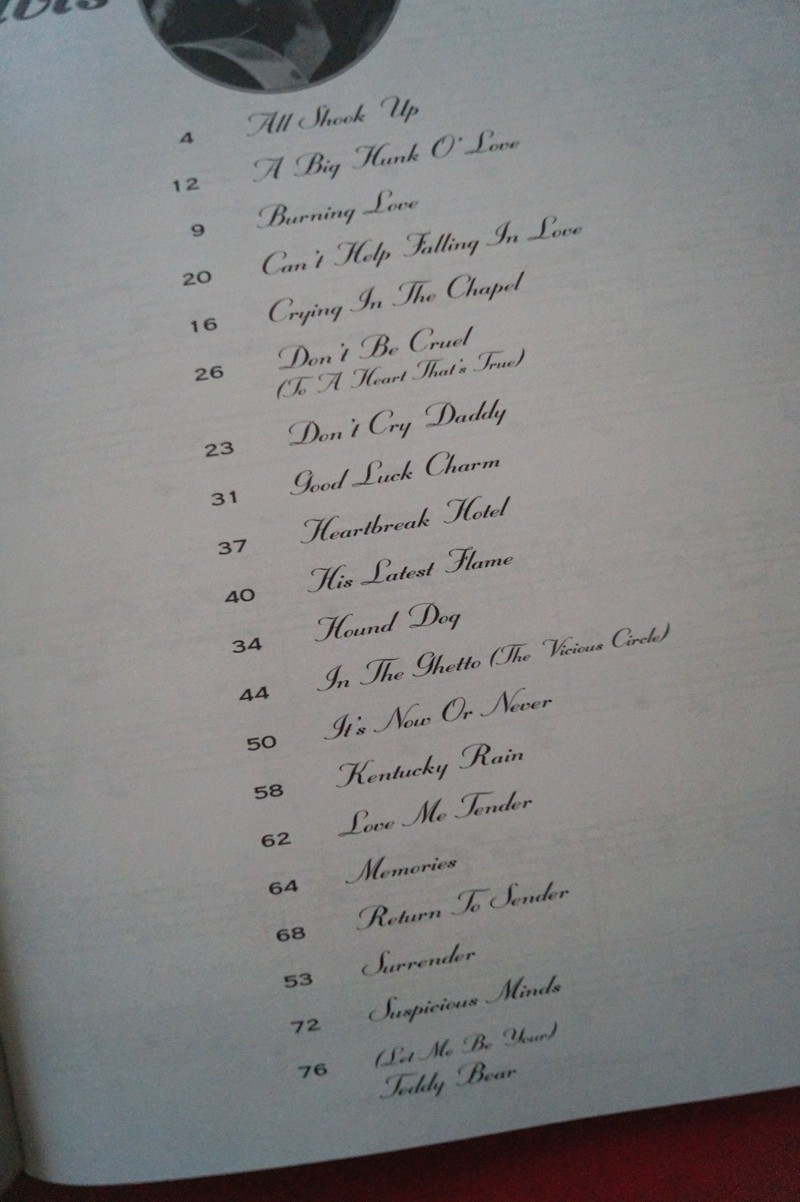 4 All Shook Up
12 A Big Hunk O' Love
9 Burning Love
20 Can't Help Falling In Love
16 Crying In The Chapel
26 Don't Be Cruel
(To A Heart That's True)
23 Don't Cry Daddy
31 Good Luck Charm
37 Heartbreak Hotel
40 His Latest Flame
34 Hound Dog
44 In The Ghetto (The Vicious Circle)
50 It's Now Or Never
58 Kentucky Rain
62 Love Me Tender
64 Memories
68 Return To Sender
53 Surrender
72 Suspicious Minds
76 (Let Me Be Your)
Teddy Bear